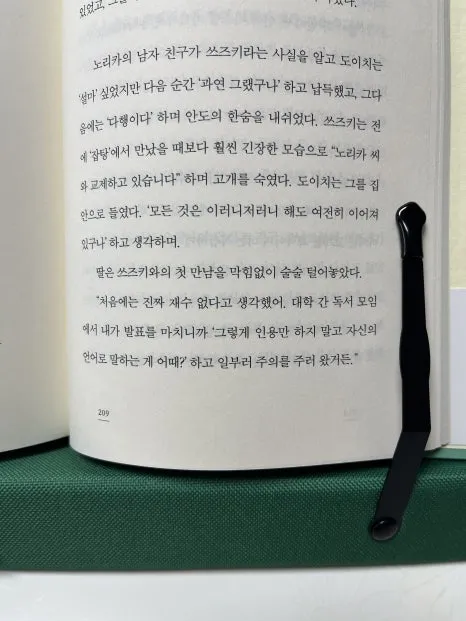 노리카의 남자 친구가 쓰즈키라는 사실을 알고 도이치는
'설마' 싶었지만 다음 순간 '과연 그랬구나' 하고 납득했고, 그다
음에는 '다행이다' 하며 안도의 한숨을 내쉬었다. 쓰즈키는 전
에 '잡탕'에서 만났을 때보다 훨씬 긴장한 모습으로 "노리카 씨
와 교제하고 있습니다" 하며 고개를 숙였다. 도이치는 그를 집
안으로 들였다. '모든 것은 이러니저러니 해도 여전히 이어져
있구나' 하고 생각하며.
딸은 쓰즈키와의 첫 만남을 막힘없이 술술 털어놓았다.
"처음에는 진짜 재수 없다고 생각했어. 대학 간 독서 모임
에서 내가 발표를 마치니까 '그렇게 인용만 하지 말고 자신의
언어로 말하는 게 어때?' 하고 일부러 주의를 주러 왔거든."
209